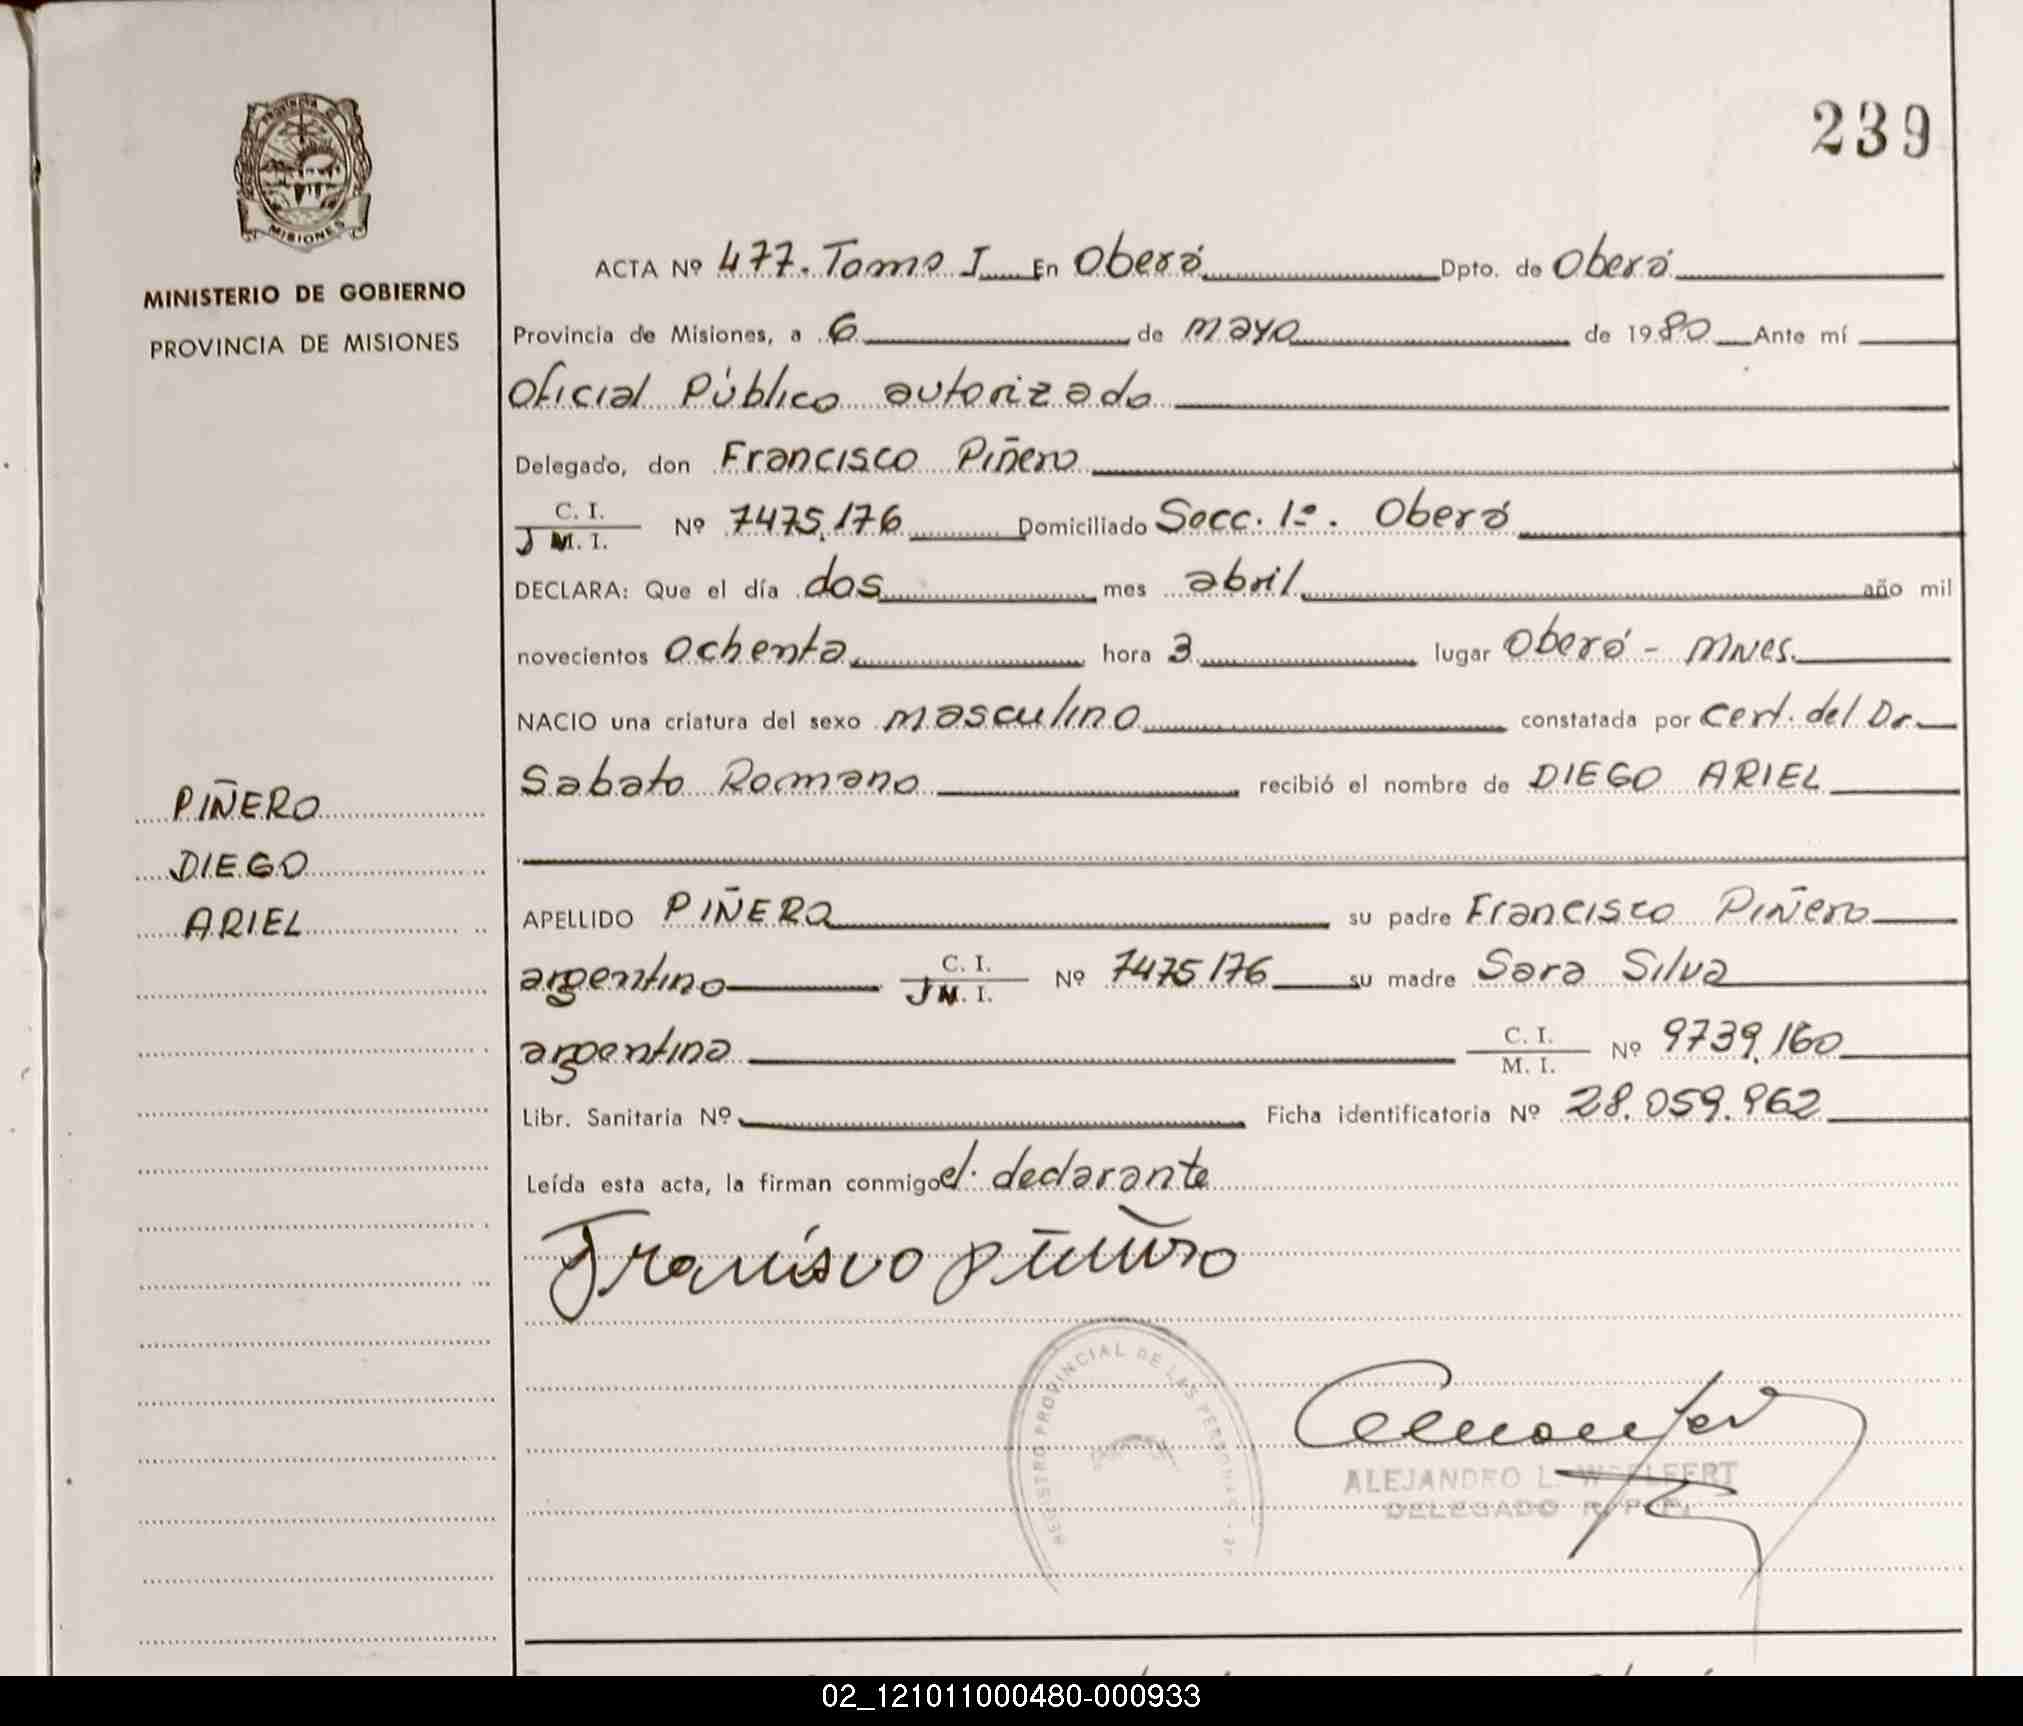 PROVINCIA
MISIONES
MINISTERIO DE GOBIERNO
PROVINCIA DE MISIONES
PIÑERO
DIEGO
ARIEL
239
ACTA Nº 477. Tomo I En Oberá Dpto. de Oberá
Provincia de Misiones, a 6 de mayo de 1980 Ante mí
Oficial Público autorizado
Delegado, don Francisco Piñero
C. I.
M. I. Nº 7475,176 Domiciliado Secc. 1ª. Oberá
DECLARA: Que el día dos mes abril año mil
novecientos ochenta hora 3 lugar Oberá - Mnes.
NACIO una criatura del sexo masculino constatada por Cert. del Dr.
Sabato Romano recibió el nombre de DIEGO ARIEL
APELLIDO PIÑERO su padre Francisco Piñero
argentino C. I. M. I. Nº 7475176 su madre Sara Silva
argentina C. I. M. I. Nº 9739,160
Libr. Sanitaria Nº Ficha identificatoria Nº 28.059.962
Leída esta acta, la firman conmigo el declarante
Francisco Piñero
REGISTRO PROVINCIAL DE LAS PERSONAS
ALEJANDRO L. WOELFERT
DELEGADO R. P. P.
02_121011000480-000933